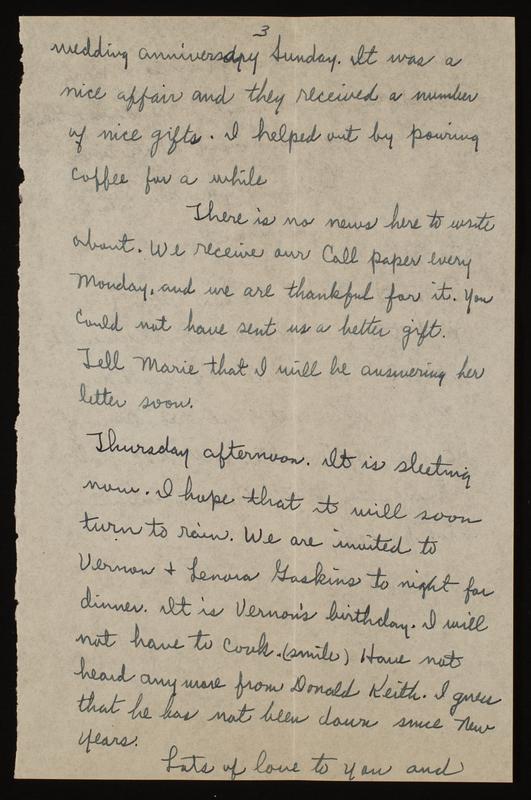 3
wedding anniversary Sunday. It was a
nice affair and they received a number
of nice gifts. I helped out by pouring
coffee for a while
There is no news here to write
about. We receive our Call paper every
Monday, and we are thankful for it. You
could not have sent us a better gift.
Tell Marie that I will be answering her
letter soon.
Thursday afternoon. It is sleeting
now. I hope that it will soon
turn to rain. We are invited to
Vernon + Lenora Gaskins to night for
dinner. It is Vernon's birthday. I will
not have to cook. (smile) Have not
heard any more from Donald Keith. I guess
that he has not been down since New
Years.
Lots of love to you and